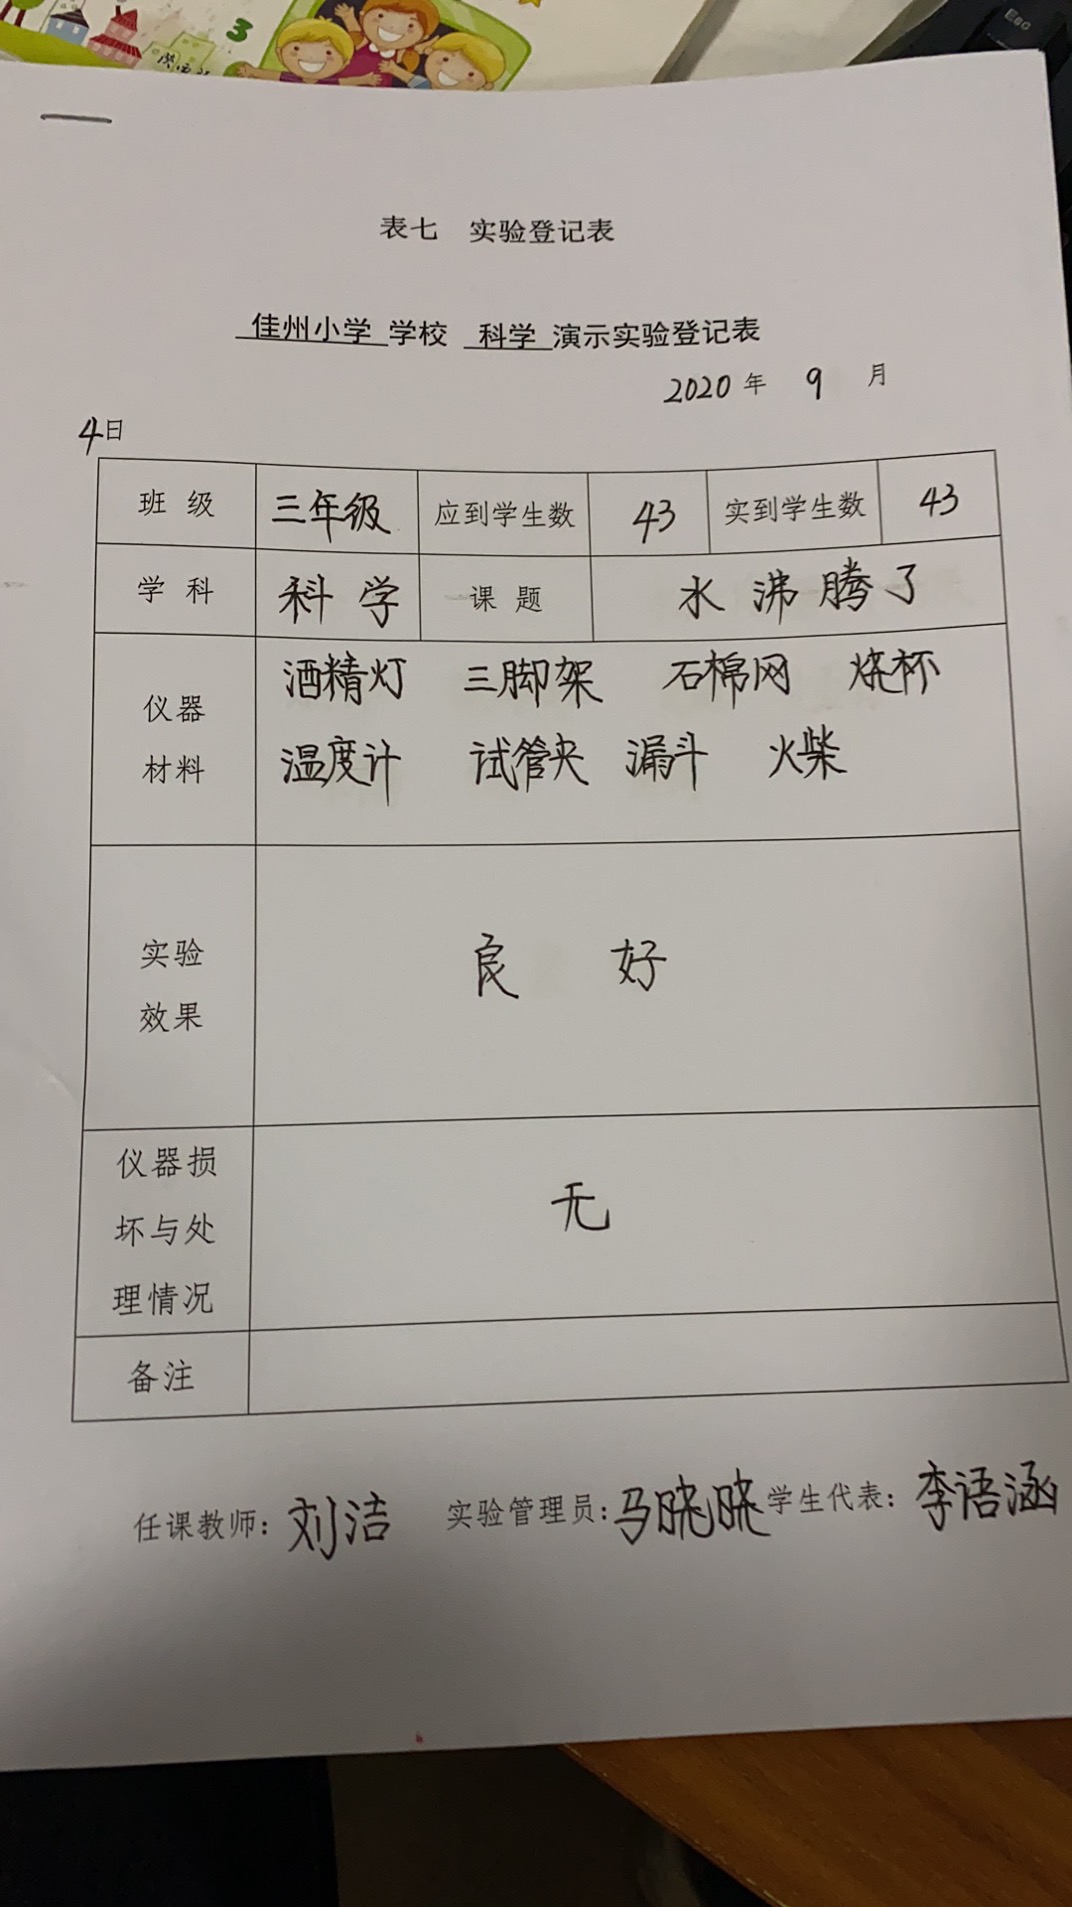 3
Esc
表七 实验登记表
佳州小学 学校 科学 演示实验登记表
2020 年 9 月
4日
班 级 三年级 应到学生数 43 实到学生数 43
学 科 科学 课 题 水沸腾了
仪器
材料
酒精灯 三脚架 石棉网 烧杯
温度计 试管夹 漏斗 火柴
实验
效果
良 好
仪器损
坏与处
理情况
无
备注
任课教师：刘洁 实验管理员：马晓晓 学生代表：李语涵